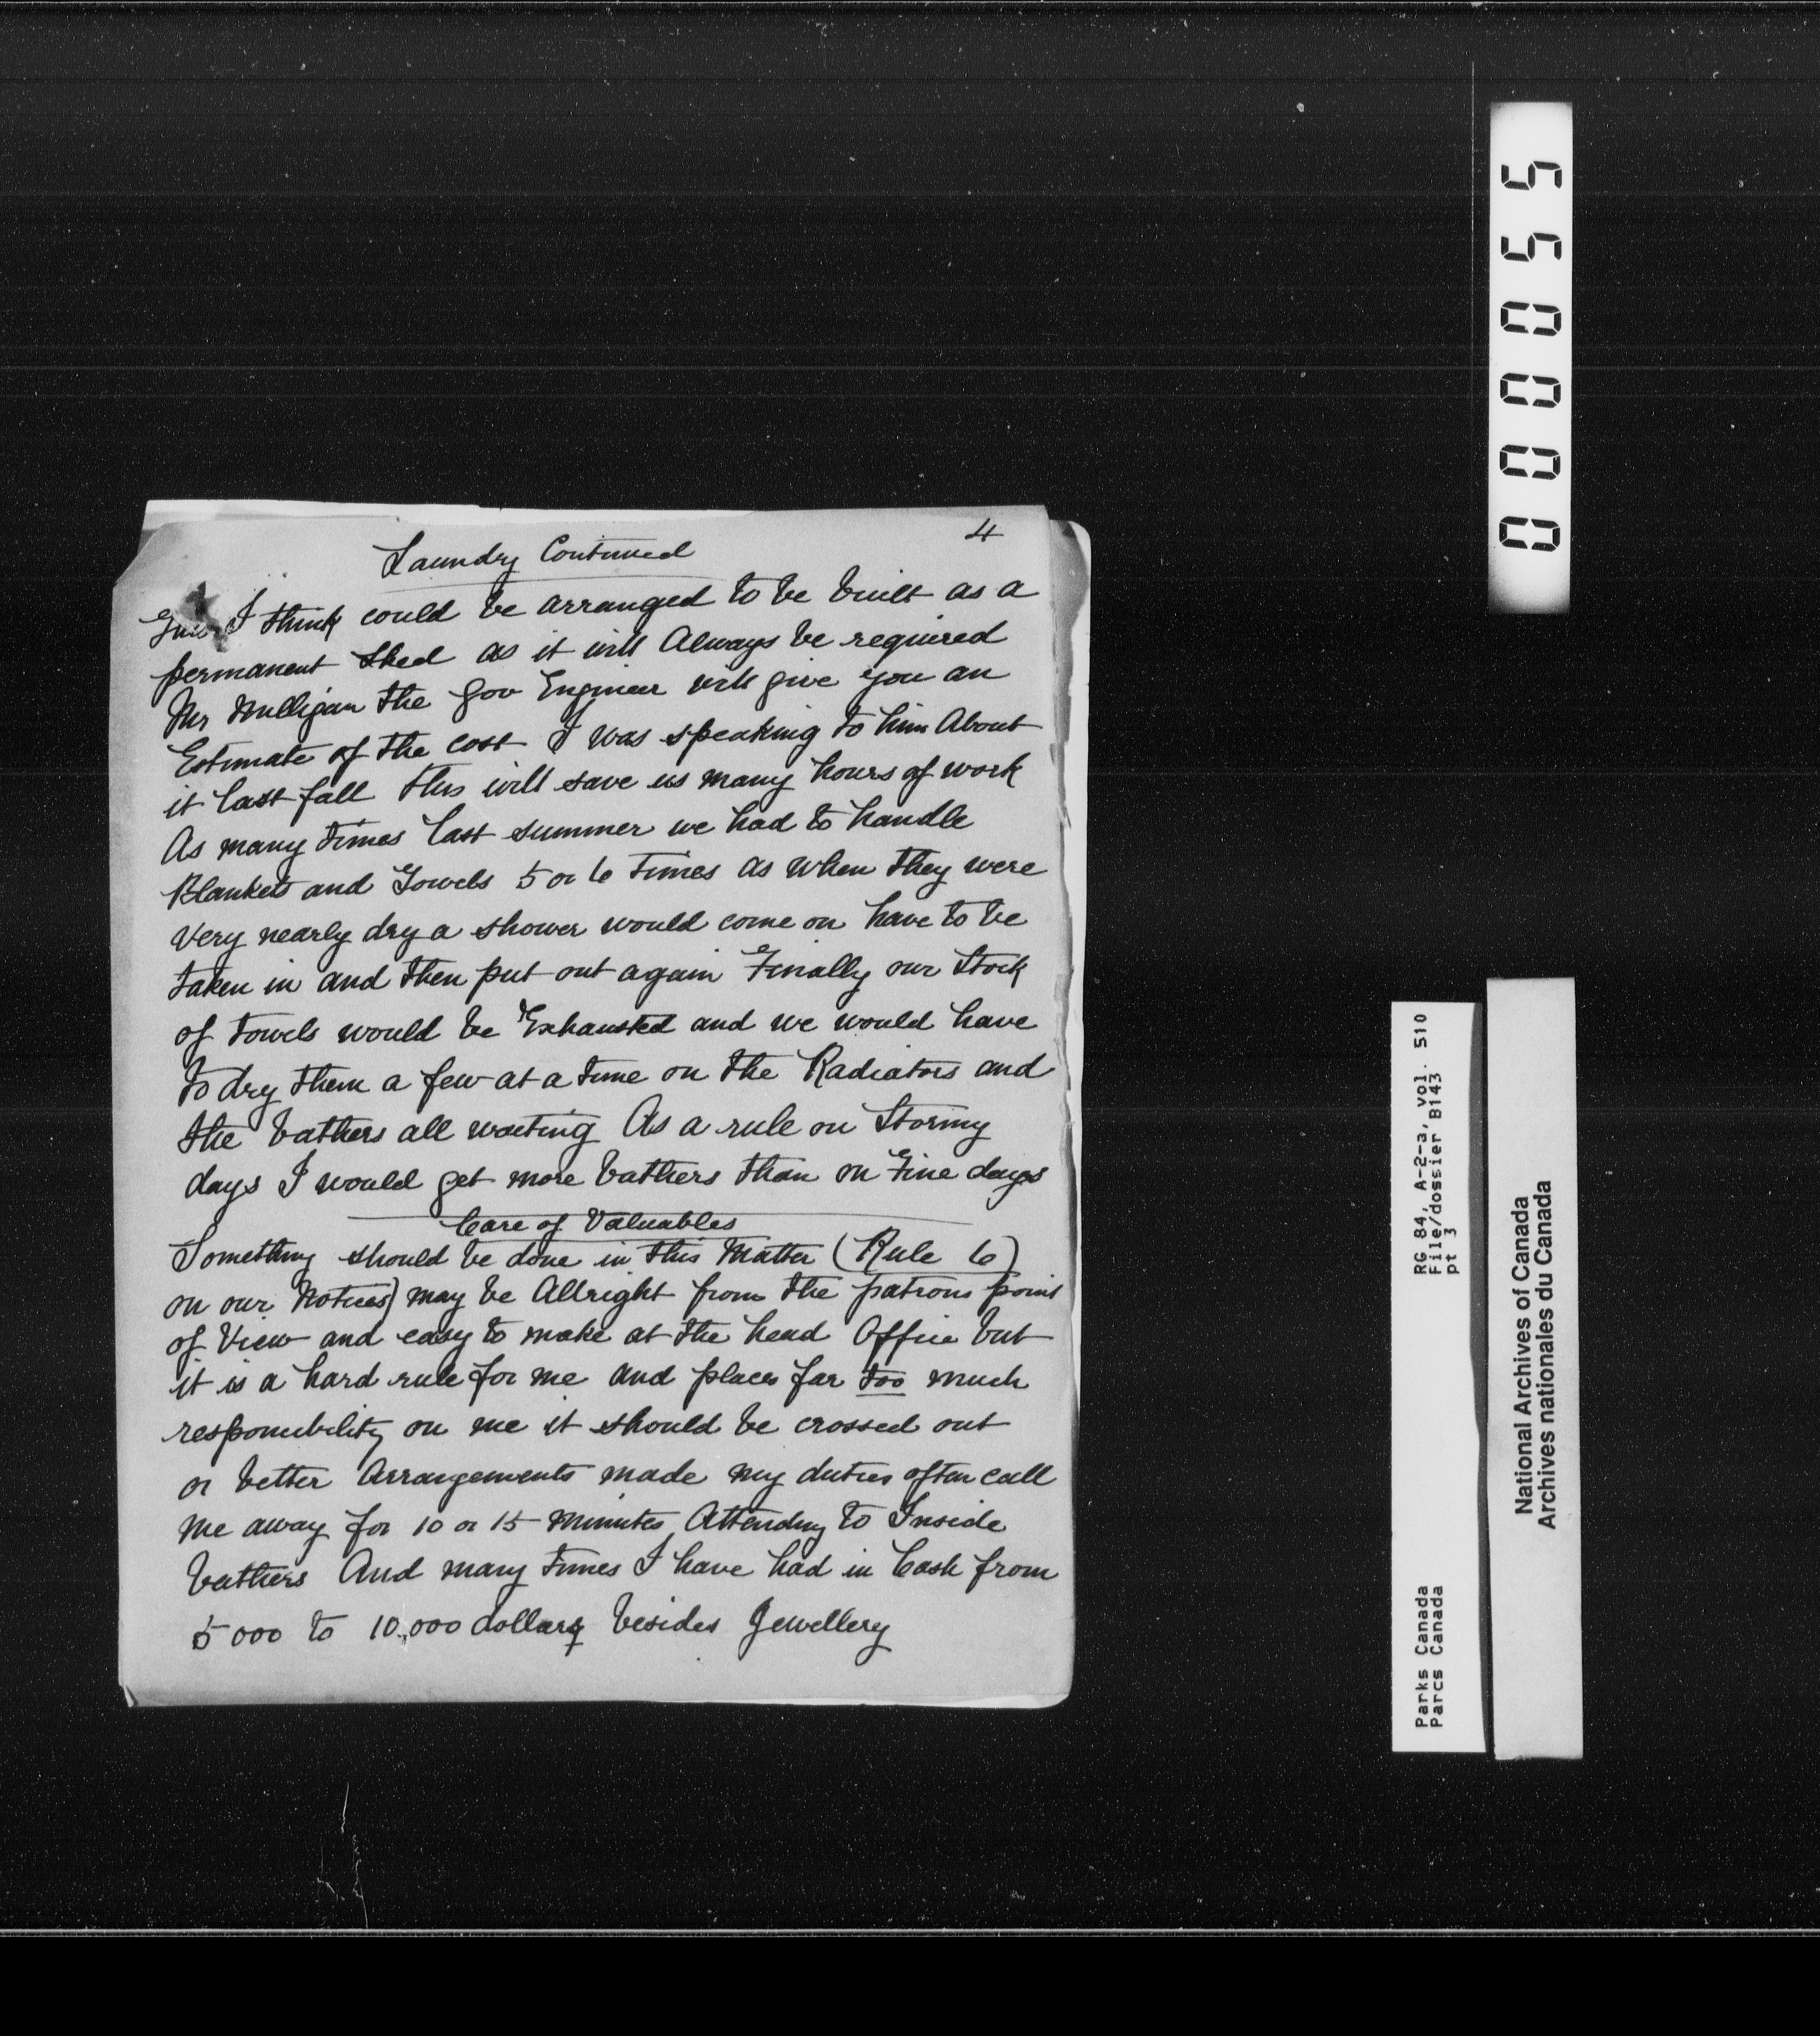 4
Laundry Continued
This I think could be arranged to be built as a
permanent shed as it will Always be required
Mr Mulligan the Gov Engineer will give you an
Estimate of the cost I was speaking to him About
it last fall this will save us many hours of work
As many times last summer we had to handle
Blankets and Towels 5 or 6 times as when they were
very nearly dry a shower would come on have to be
taken in and then put out again Finally our Stock
of towels would be Exhausted and we would have
to dry them a few at a time on the Radiators and
the bathers all waiting As a rule on Stormy
days I would get more bathers than on Fine days
Care of Valuables
Something should be done in this Matter (Rule 6)
on our Notices) may be Allright from the patrons point
of View and easy to make at the head Office but
it is a hard rule for me and places far too much
responsibility on me it should be crossed out
or better Arrangements made my duties often call
me away for 10 or 15 Minutes Attending to Inside
bathers And many times I have had in Cash from
5000 to 10,000 dollars besides Jewellery
000055
RG 84, A-2-a, vol. 510
File/dossier B143
pt 3
Parks Canada
Parcs Canada
National Archives of Canada
Archives nationales du Canada